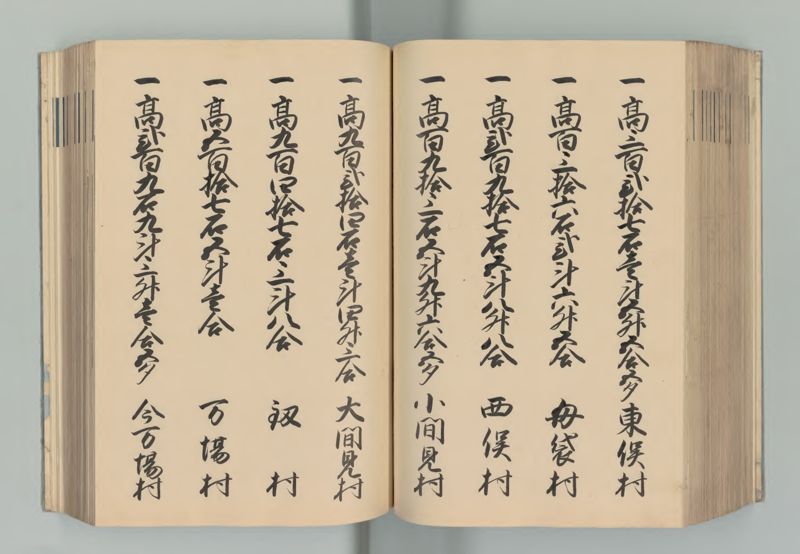 一 高三百弐拾七石壱斗五升五合五夕 東俣村
一 高百三拾六石弐斗六升五合 母袋村
一 高弐百九拾七石五斗八升八合 西俣村
一 高百九拾三石五斗九升六合五夕 小間見村
一 高九百弐拾四石壱斗四升三合 大間見村
一 高九百四拾七石三斗八合 剱村
一 高五百拾七石五斗壱合 万場村
一 高弐百九石九斗三升壱合五夕 今万場村